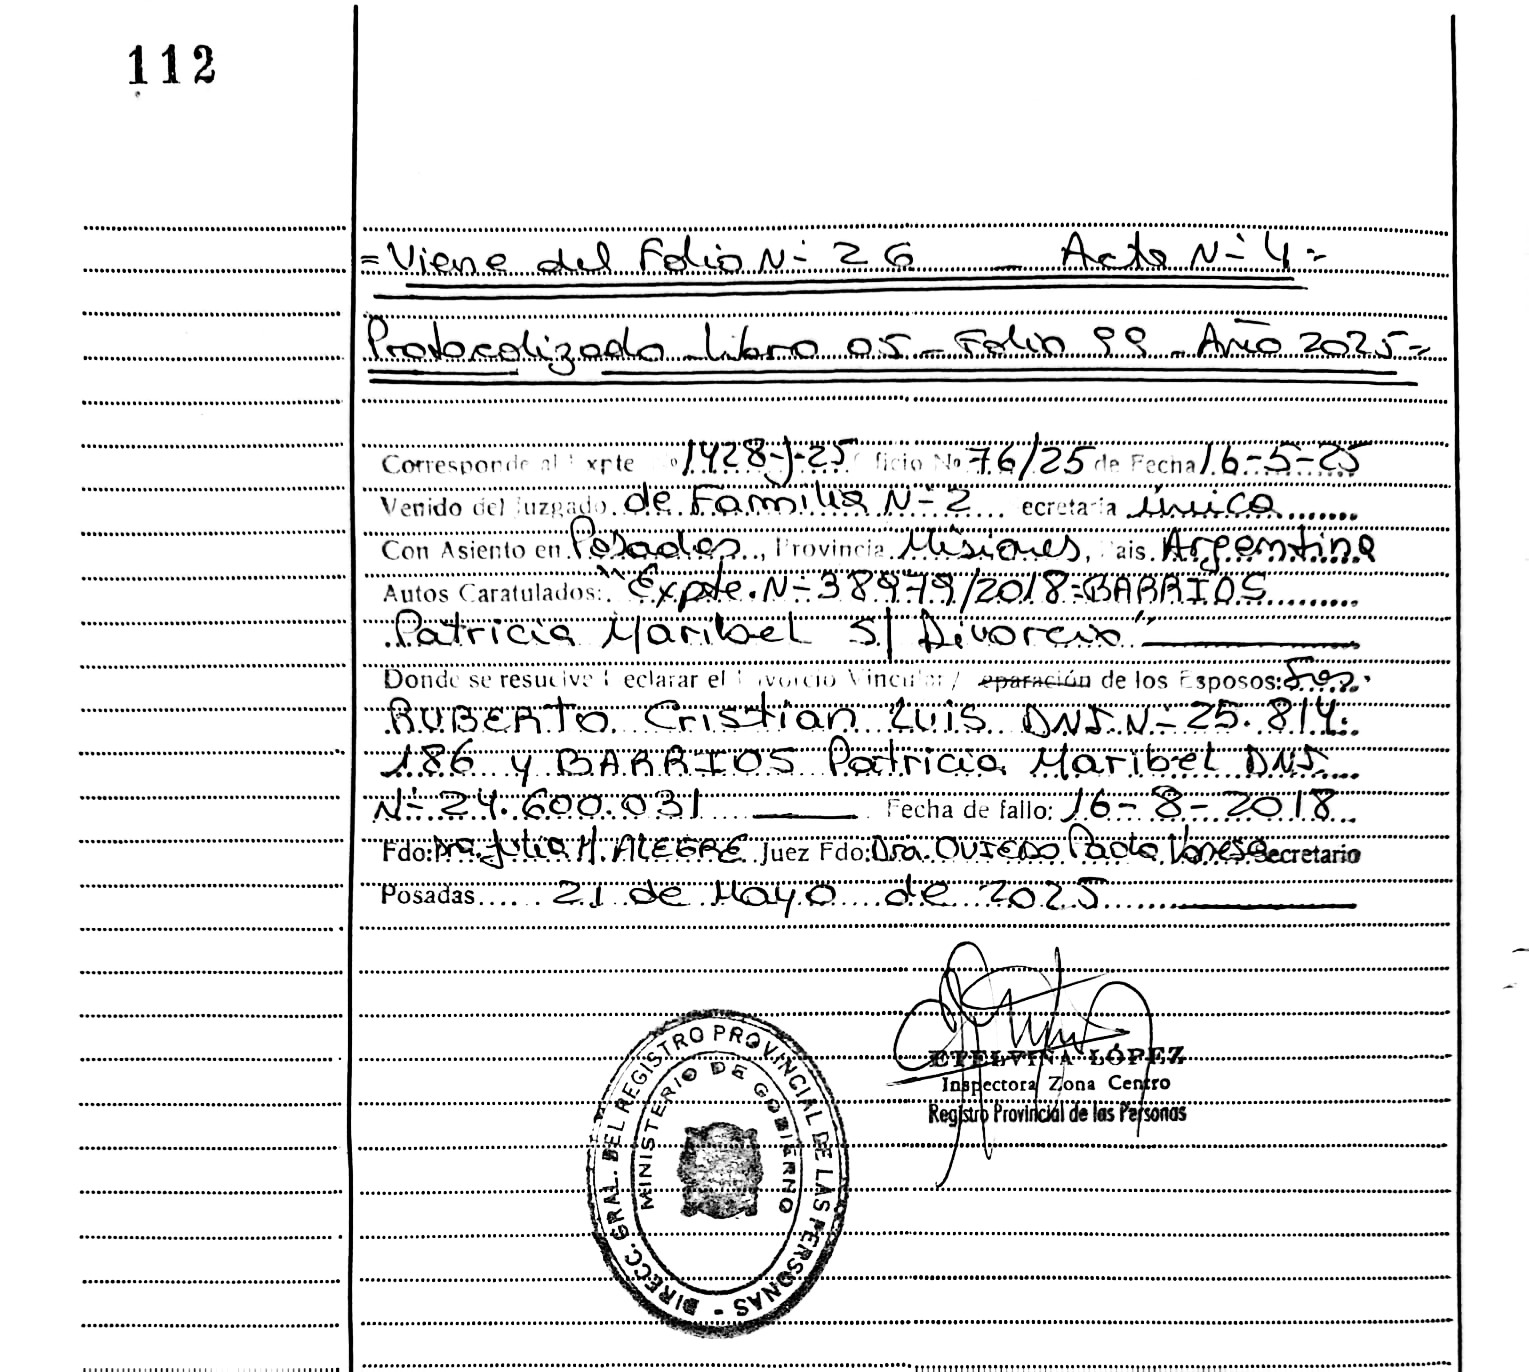 112
=Viene del Folio N- 26 _ Acta N- 4=
Protocolizado Libro 05 - Folio 99 - Año 2025=
Corresponde al Expte Nº 1428-J-25 Oficio Nº 76/25 de Fecha 16-5-25
Venido del Juzgado de Familia N-2 ecretaria única
Con Asiento en Posadas, Provincia Misiones, Pais Argentina
Autos Caratulados: "Expte. N-38979/2018-BARRIOS
Patricia Maribel S/ Divorcio"
Donde se resuelve Declarar el Divorcio Vincular / eparación de los Esposos: Sres.
RUBERTO Cristian Luis DNI.N-25.814.
186 y BARRIOS Patricia Maribel DNI
N-24.600.031 Fecha de fallo: 16-8-2018
Fdo: Dra. Julia H. ALEGRE Juez Fdo: Dra OVIEDO Paola Vanesa Secretario
Posadas 21 de Mayo de 2025
ETELVINA LÓPEZ
Inspectora Zona Centro
Registro Provincial de las Personas
DIRECC. GRAL. DEL REGISTRO PROVINCIAL DE LAS PERSONAS -
MINISTERIO DE GOBIERNO